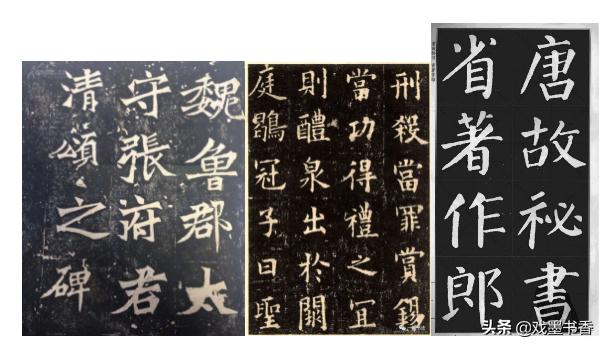 魏魯郡太
守張府君
清頌之碑
刑殺當罪賞錫
當功得禮之宜
則醴泉出於闕
庭鶡冠子曰聖
唐故祕書
省著作郎
头条 @戏墨书香